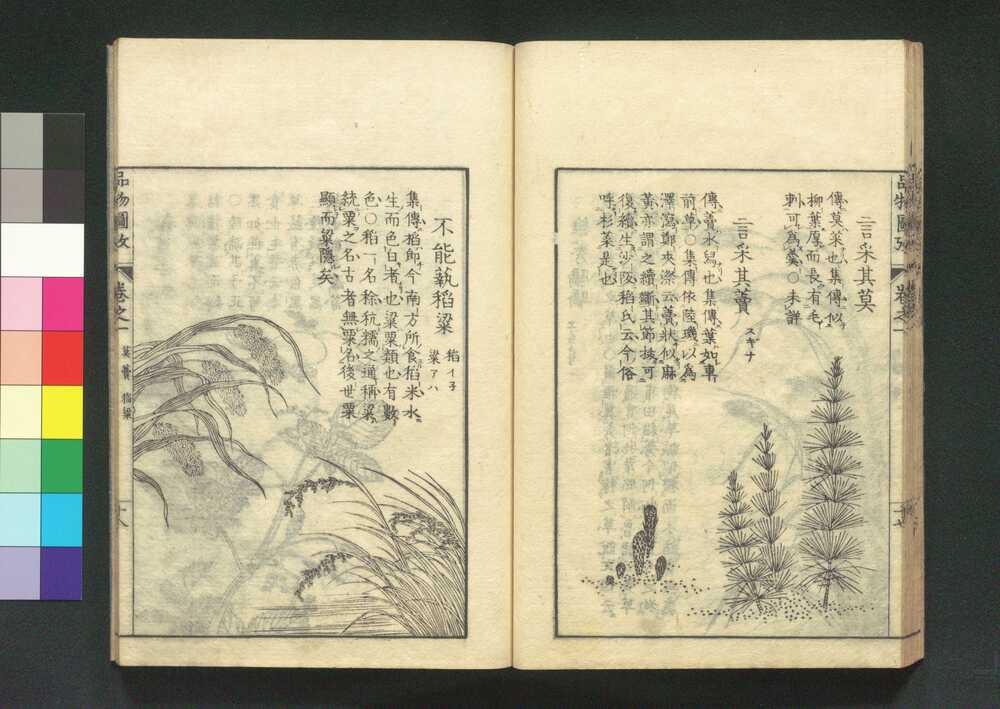 言采其莫
傳莫菜也集傳似
柳葉厚而長有毛
刺可為羹○未詳
言采其藚 スギナ
傳藚水舄也集傳葉如車
前草○集傳依陸璣以為
澤瀉鄭夾漈云藚狀似麻
黃亦謂之續斷其節拔可
復續生沙阪稻氏云今俗
呼杉菜是也
品物圖攷
卷之一
不能蓺稻粱
稻イ子
粱アハ
集傳稻即今南方所食稻米水
生而色白者也粱粟類也有數
色○稻一名稌秔糯之通稱粱
統粟之名古者無粟名後世粟
顯而粱隱矣
品物圖攷
卷之一
莫 藚 稻粱
十八